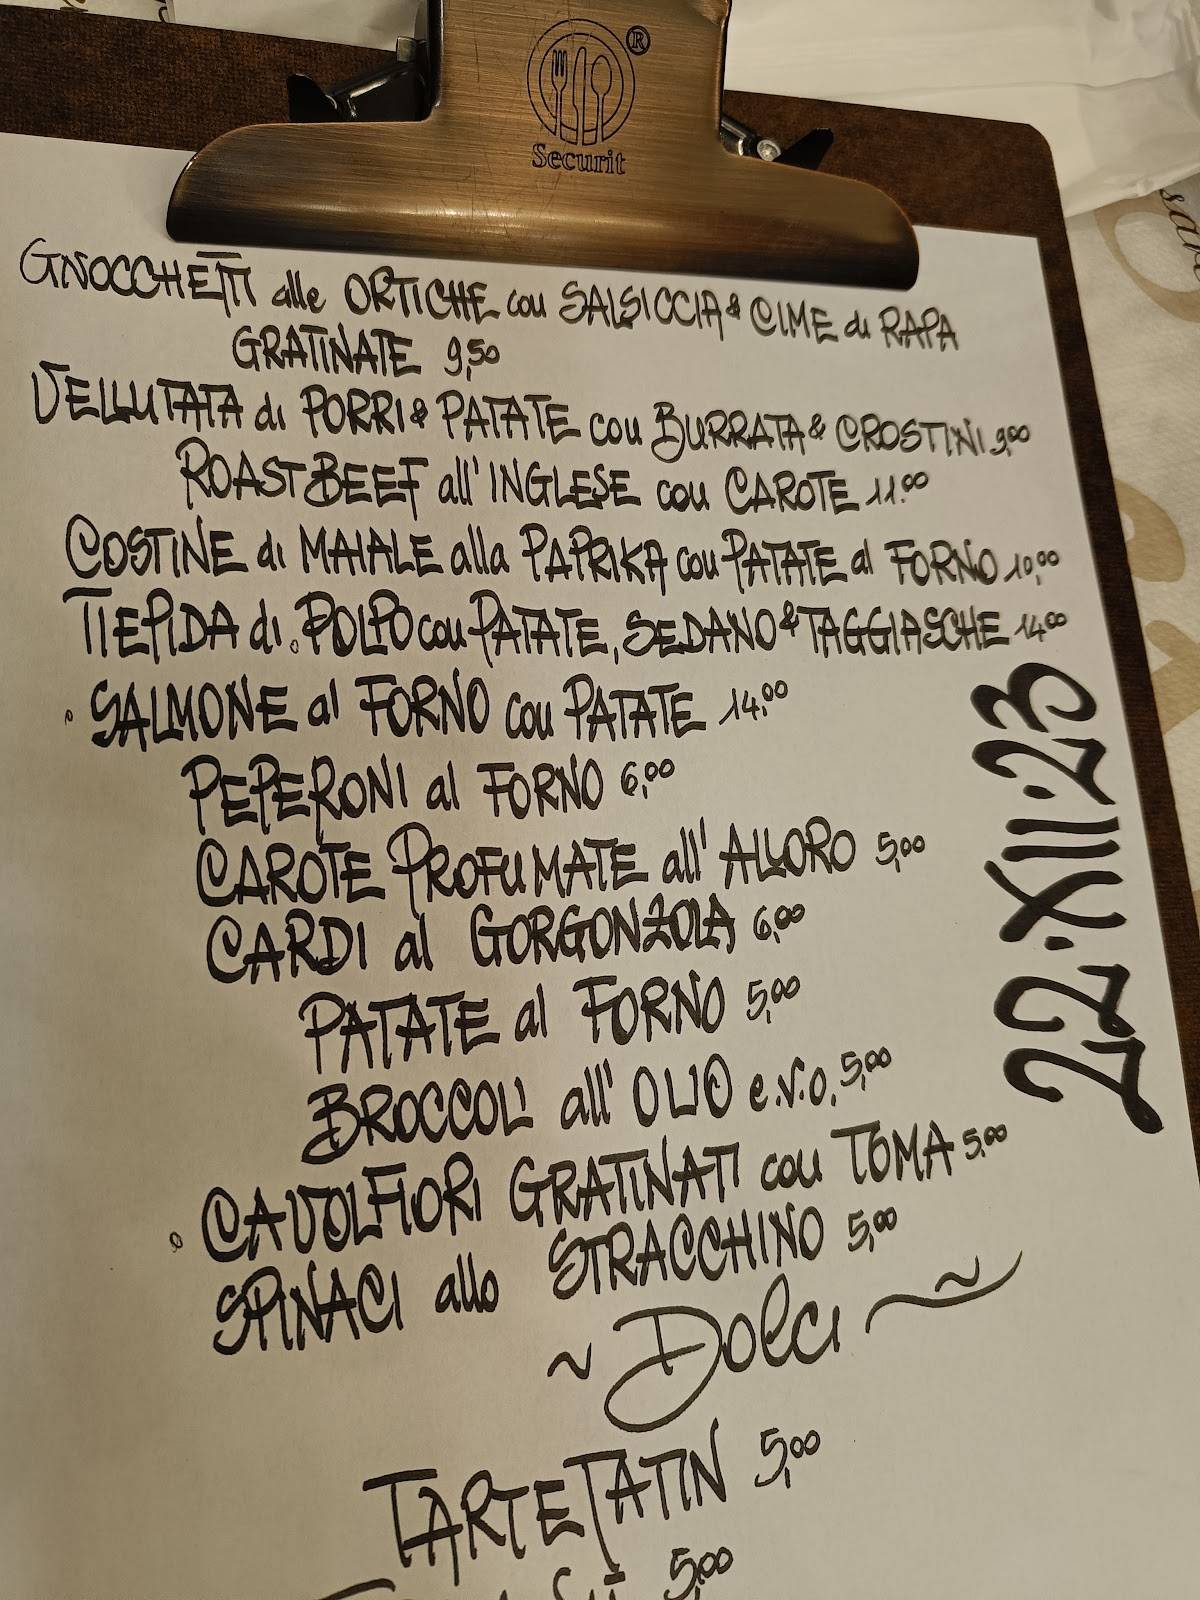 ®
Securit
GNOCCHETTI alle ORTICHE con SALSICCIA & CIME di RAPA
GRATINATE 9,50
VELLUTATA di PORRI & PATATE con BURRATA & CROSTINI 9,00
ROAST BEEF all' INGLESE con CAROTE 11,00
COSTINE di MAIALE alla PAPRIKA con PATATE al FORNO 10,00
TIEPIDA di °POLPO con PATATE, SEDANO & TAGGIASCHE 14,00
° SALMONE al FORNO con PATATE 14,00
PEPERONI al FORNO 6,00
CAROTE PROFUMATE all' ALLORO 5,00
CARDI al GORGONZOLA 6,00
PATATE al FORNO 5,00
BROCCOLI all' OLIO e.v.o. 5,00
° CAVOLFIORI GRATINATI con TOMA 5,00
SPINACI allo STRACCHINO 5,00
~ Dolci ~
TARTE TATIN 5,00
5,00
22·XII·23